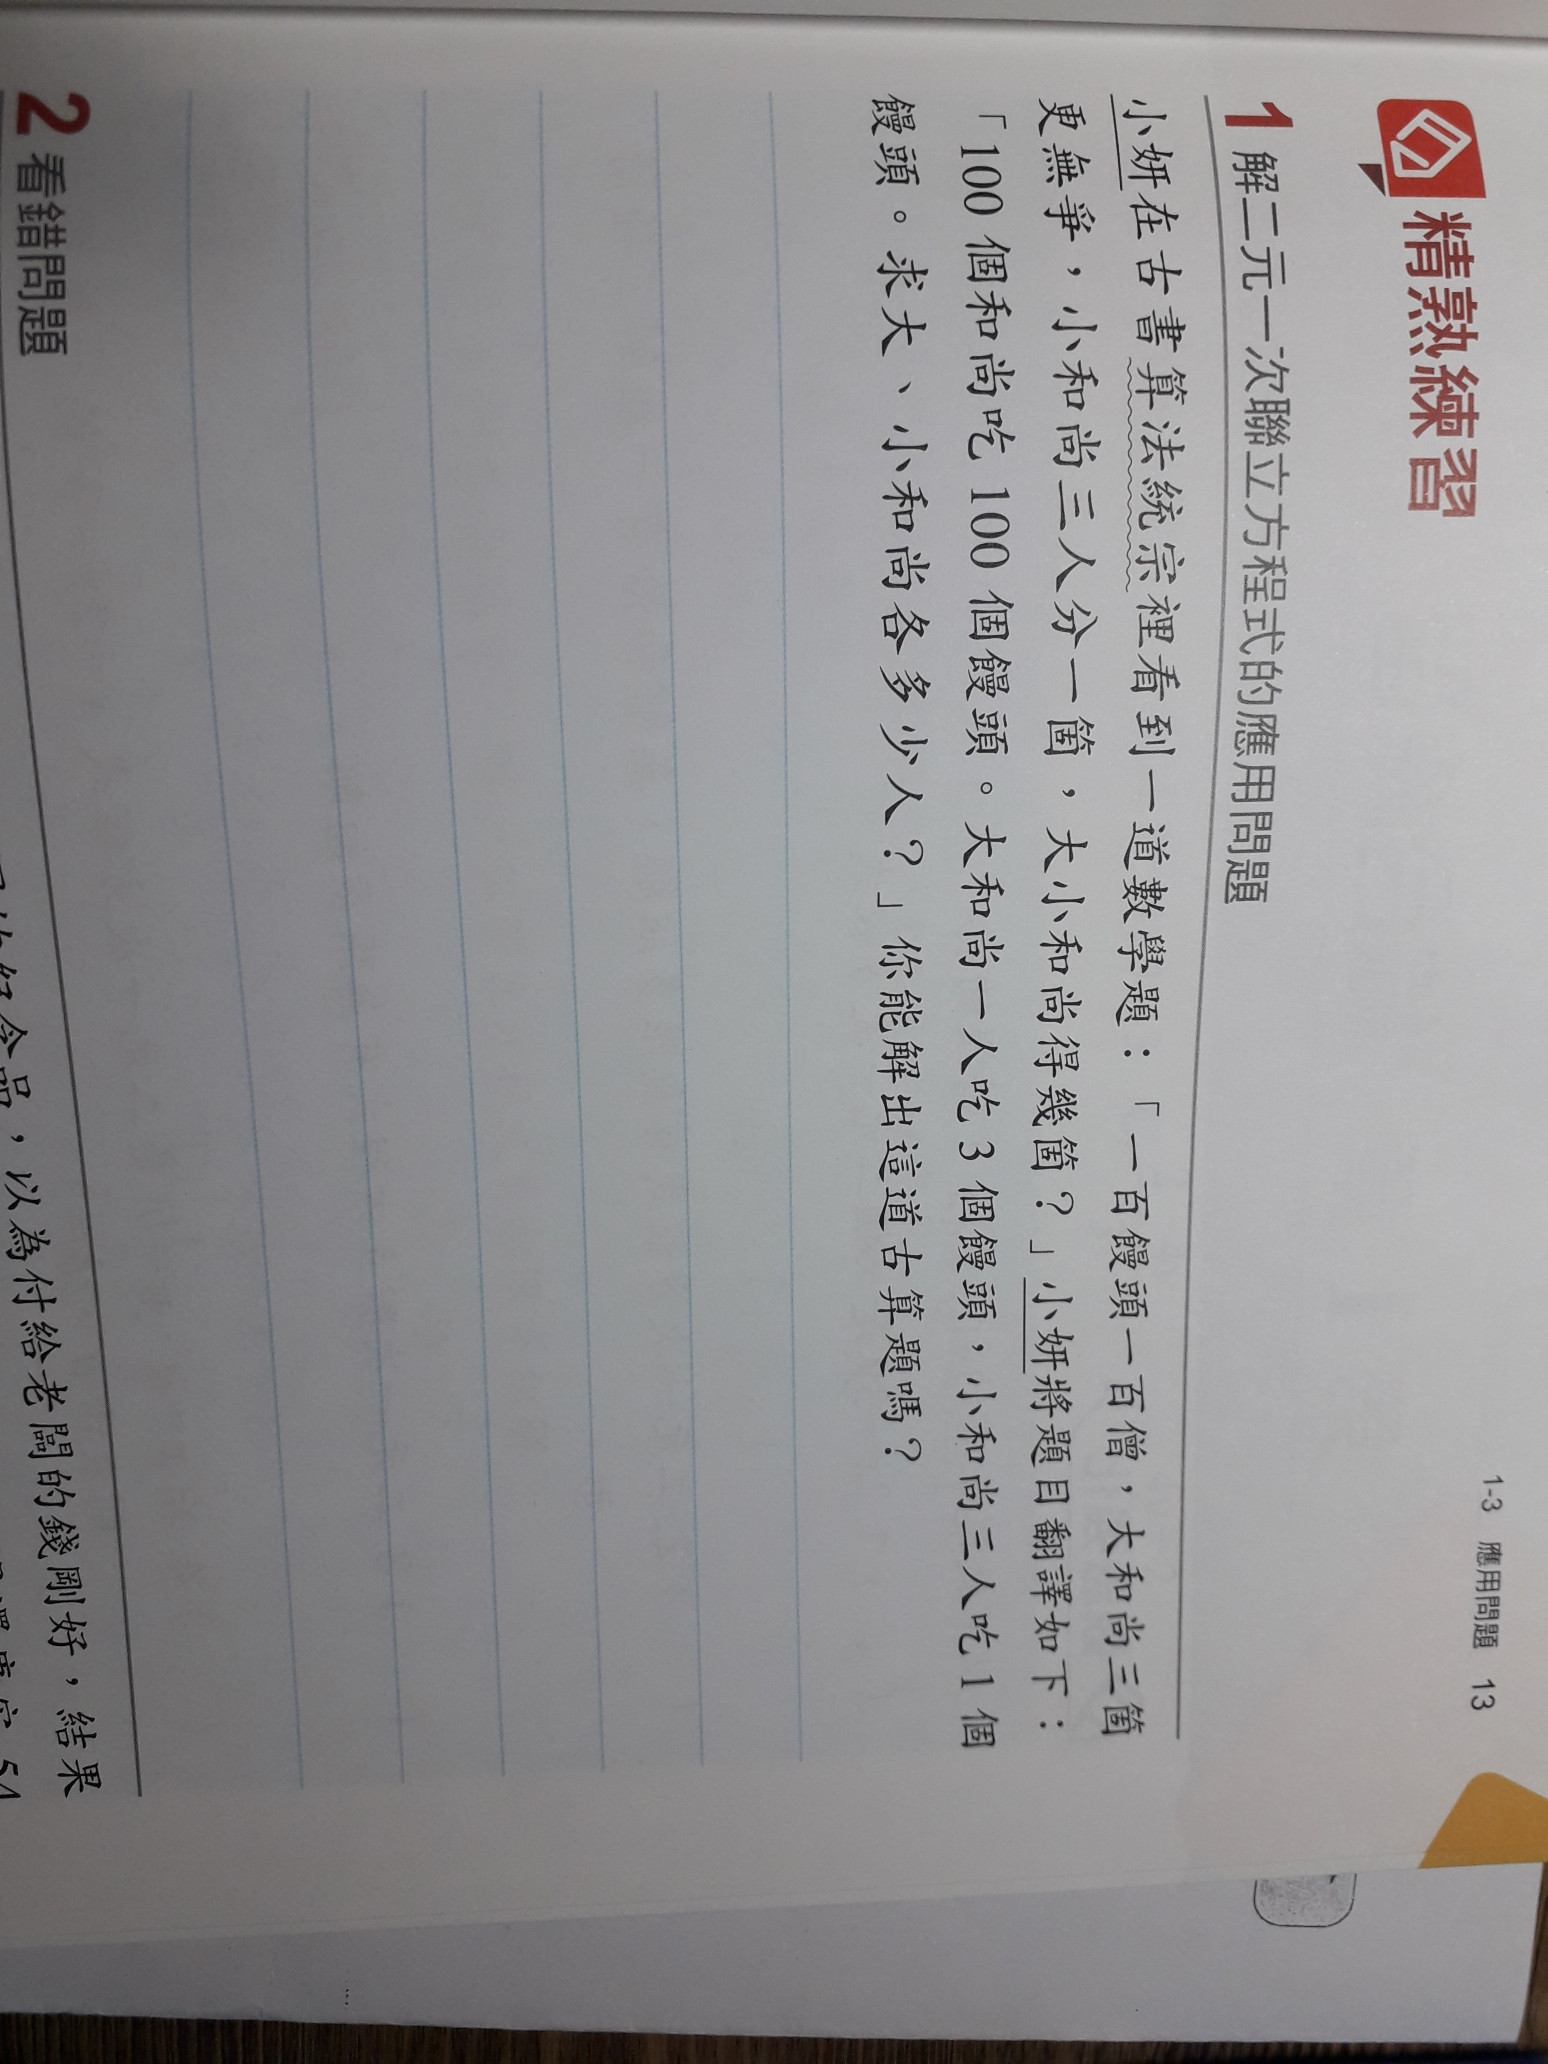 1-3 應用問題 13
精熟練習
1 解二元一次聯立方程式的應用問題
小妍在古書算法統宗裡看到一道數學題：「一百饅頭一百僧，大和尚三箇
更無爭，小和尚三人分一箇，大小和尚得幾箇？」小妍將題目翻譯如下：
「100 個和尚吃 100 個饅頭。大和尚一人吃 3 個饅頭，小和尚三人吃 1 個
饅頭。求大、小和尚各多少人？」你能解出這道古算題嗎？
2 看錯問題
品，以為付給老闆的錢剛好，結果